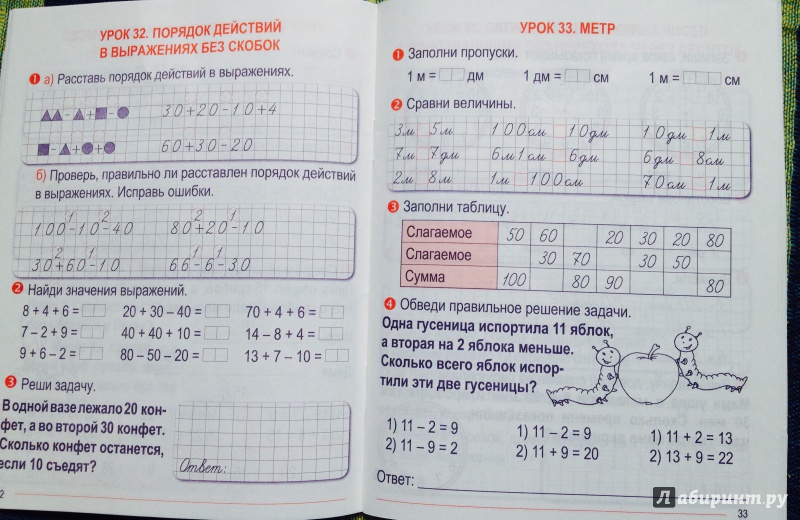 УРОК 32. ПОРЯДОК ДЕЙСТВИЙ
В ВЫРАЖЕНИЯХ БЕЗ СКОБОК
1 а) Расставь порядок действий в выражениях.
30+20-10+4
60+30-20
б) Проверь, правильно ли расставлен порядок действий
в выражениях. Исправь ошибки.
1 2 1
100-10-40 80+20-10
2 1 1 1
30+60-10 66-6-30
2 Найди значения выражений.
8 + 4 + 6 = 20 + 30 – 40 = 70 + 4 + 6 =
7 – 2 + 9 = 40 + 40 + 10 = 14 – 8 + 4 =
9 + 6 – 2 = 80 – 50 – 20 = 13 + 7 – 10 =
3 Реши задачу.
В одной вазе лежало 20 кон-
фет, а во второй 30 конфет.
Сколько конфет останется,
если 10 съедят?
Ответ:
2
УРОК 33. МЕТР
1 Заполни пропуски.
1 м = дм 1 дм = см 1 м = см
2 Сравни величины.
3м 5м 100см 10дм 10дм 1м
7м 7дм 6м1см 6дм 6дм 8см
2м 8м 1м 100см 70см 1м
3 Заполни таблицу.
Слагаемое 50 60 20 30 20 80
Слагаемое 30 70 30 50
Сумма 100 80 90 80
4 Обведи правильное решение задачи.
Одна гусеница испортила 11 яблок,
а вторая на 2 яблока меньше.
Сколько всего яблок испор-
тили эти две гусеницы?
1) 11 – 2 = 9 1) 11 – 2 = 9 1) 11 + 2 = 13
2) 11 – 9 = 2 2) 11 + 9 = 20 2) 13 + 9 = 22
Ответ:
33
Лабиринт.ру